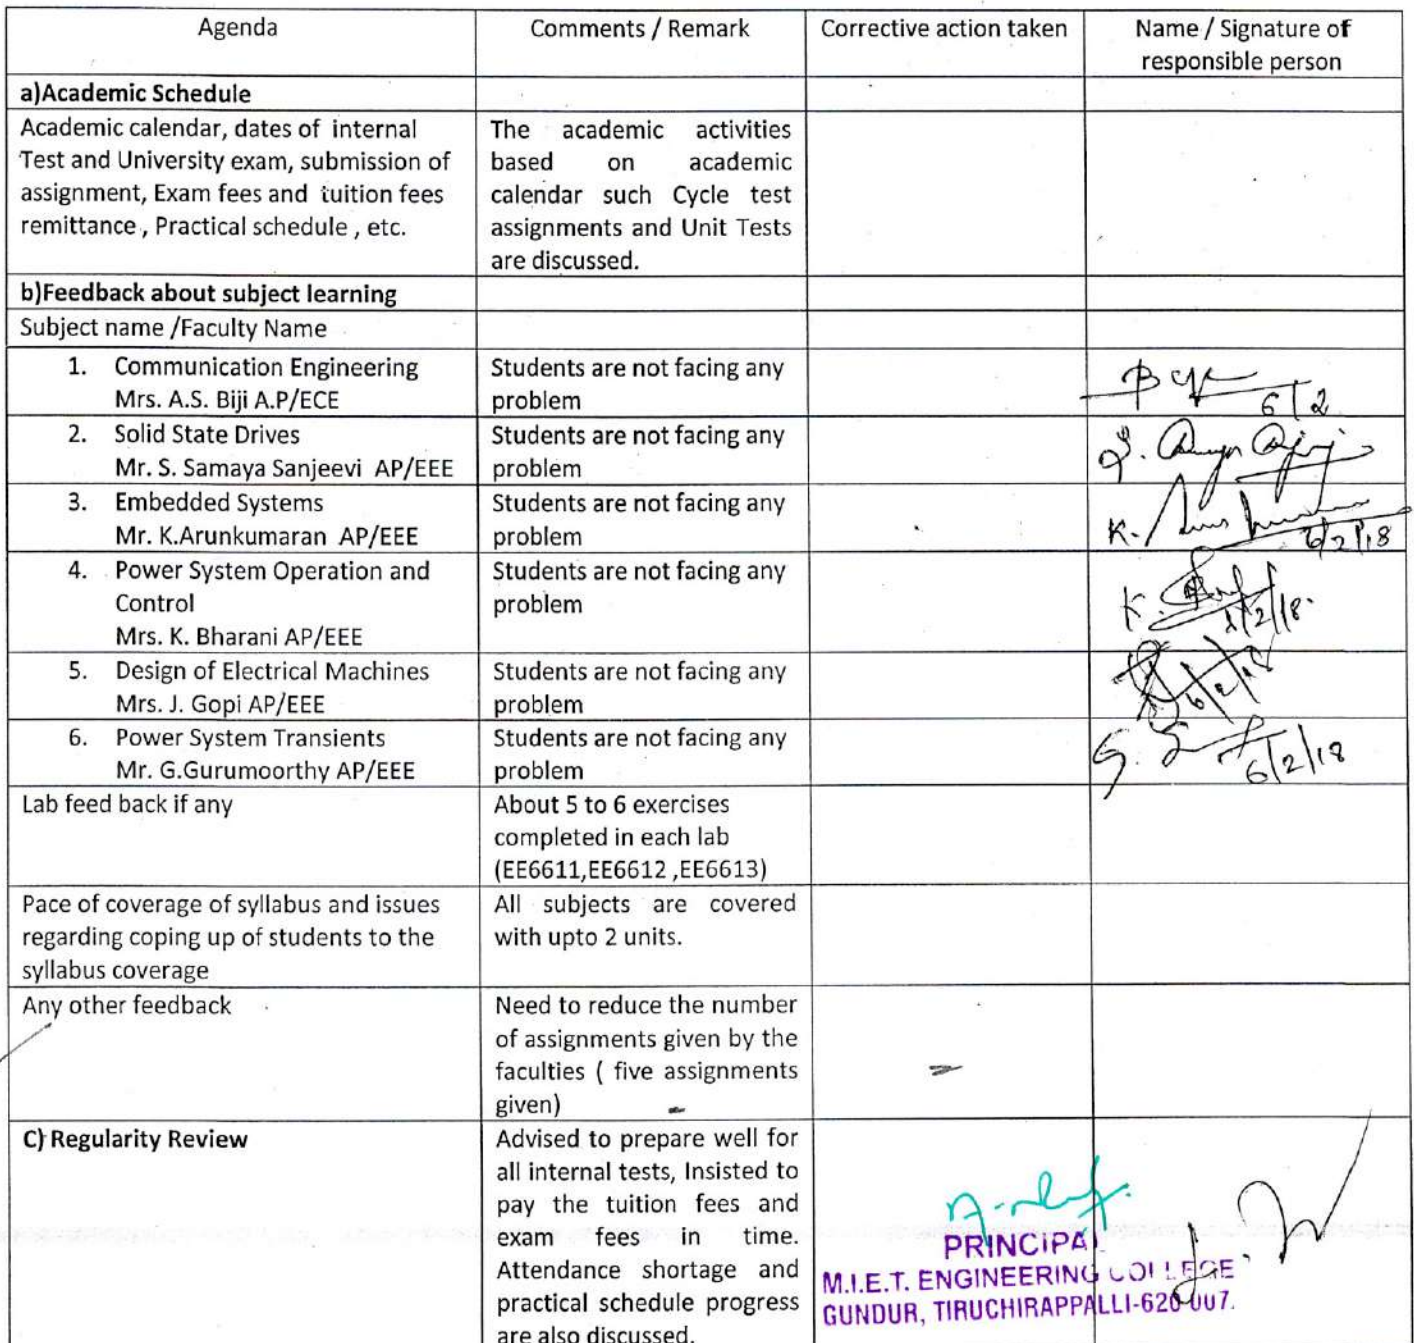 Agenda
Comments / Remark
Corrective action taken
Name / Signature of
responsible person
a)Academic Schedule
Academic calendar, dates of internal
Test and University exam, submission of
assignment, Exam fees and tuition fees
remittance , Practical schedule , etc.
The academic activities
based on academic
calendar such Cycle test
assignments and Unit Tests
are discussed.
b)Feedback about subject learning
Subject name /Faculty Name
1. Communication Engineering
Mrs. A.S. Biji A.P/ECE
Students are not facing any
problem
6/2
2. Solid State Drives
Mr. S. Samaya Sanjeevi AP/EEE
Students are not facing any
problem
3. Embedded Systems
Mr. K.Arunkumaran AP/EEE
Students are not facing any
problem
K.
6/2/18
4. Power System Operation and
Control
Mrs. K. Bharani AP/EEE
Students are not facing any
problem
K.
5. Design of Electrical Machines
Mrs. J. Gopi AP/EEE
Students are not facing any
problem
6. Power System Transients
Mr. G.Gurumoorthy AP/EEE
Students are not facing any
problem
G.
6/2/18
Lab feed back if any
About 5 to 6 exercises
completed in each lab
(EE6611,EE6612 ,EE6613)
Pace of coverage of syllabus and issues
regarding coping up of students to the
syllabus coverage
All subjects are covered
with upto 2 units.
Any other feedback
Need to reduce the number
of assignments given by the
faculties ( five assignments
given)
C) Regularity Review
Advised to prepare well for
all internal tests, Insisted to
pay the tuition fees and
exam fees in time.
Attendance shortage and
practical schedule progress
are also discussed.
PRINCIPAL
M.I.E.T. ENGINEERING COLLEGE
GUNDUR, TIRUCHIRAPPALLI-620 007.